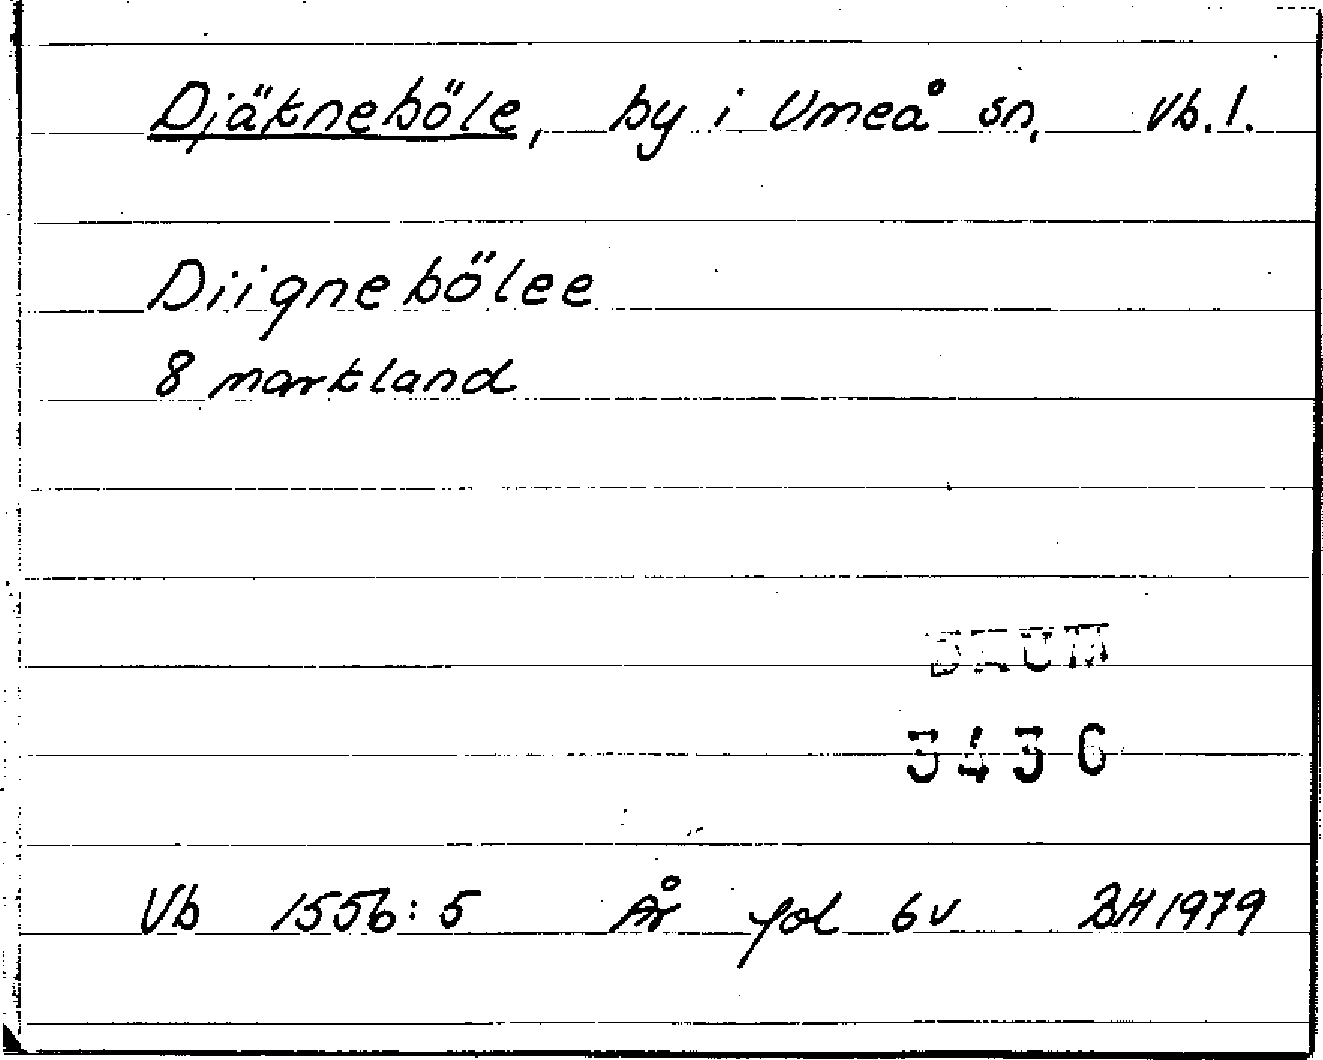 Djäkneböle, by i Umeå sn, Vb.l.
Diignebölee
8 markland
DAUM
3436
Vb 1556:5 År fol 6v BH 1979